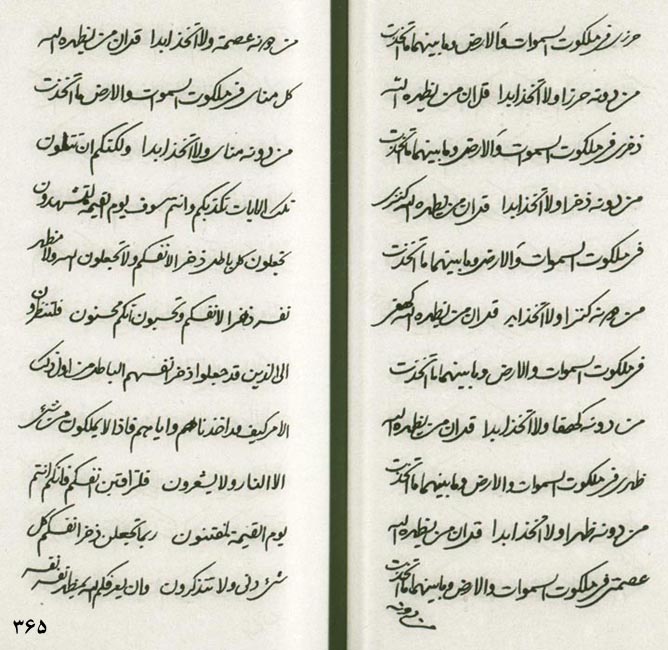 حرزی فی ملکوت السموات والارض وما بینهما ما اتخذت
من دونه حرزا ولا اتخذ ابدا قل ان من یظهره الله
ذخری فی ملکوت السموات والارض وما بینهما ما اتخذت
من دونه ذخرا ولا اتخذ ابدا قل ان من یظهره الله کنزی
فی ملکوت السموات والارض وما بینهما ما اتخذت
من دونه کنزا ولا اتخذ ابد قل ان من یظهره الله کهفی
فی ملکوت السموات والارض وما بینهما ما اتخذت
من دونه کهفا ولا اتخذ ابدا قل ان من یظهره الله
ظهری فی ملکوت السموات والارض وما بینهما ما اتخذت
من دونه ظهرا ولا اتخذ ابدا قل ان من یظهره الله
عصمتی فی ملکوت السموات والارض وما بینهما ما اتخذت
من دونه
من دونه عصمة ولا اتخذ ابدا قل ان من یظهره الله
کل منای فی ملکوت السموات والارض ما اتخذت
من دونه منای ولا اتخذ ابدا ولکنکم ان تتلون
تلک الایات تکذبکم وانتم سوف یوم القیمة لتشهدون
تجعلون کل باطل ذخر الانفسکم ولا تجعلون الله ولا مظهر
نفسه ذخرا لانفسکم وتحسبون انکم محسنون فلتنظرون
الی الذین قد جعلوا ذخر انفسهم الباطل من اول ذلک
الامر کیف قد اخذناهم وایاهم فاذا لا یملکون من شیء
الا النار ولا یشعرون فلتراقبن انفسکم فانکم انتم
یوم القیمة لتفتنون ربما تجعلن ذخر انفسکم کل
شیء دنی ولا تتذکرون وان یعرفکم الله مظهر نفسه نفسه
۳۶۵